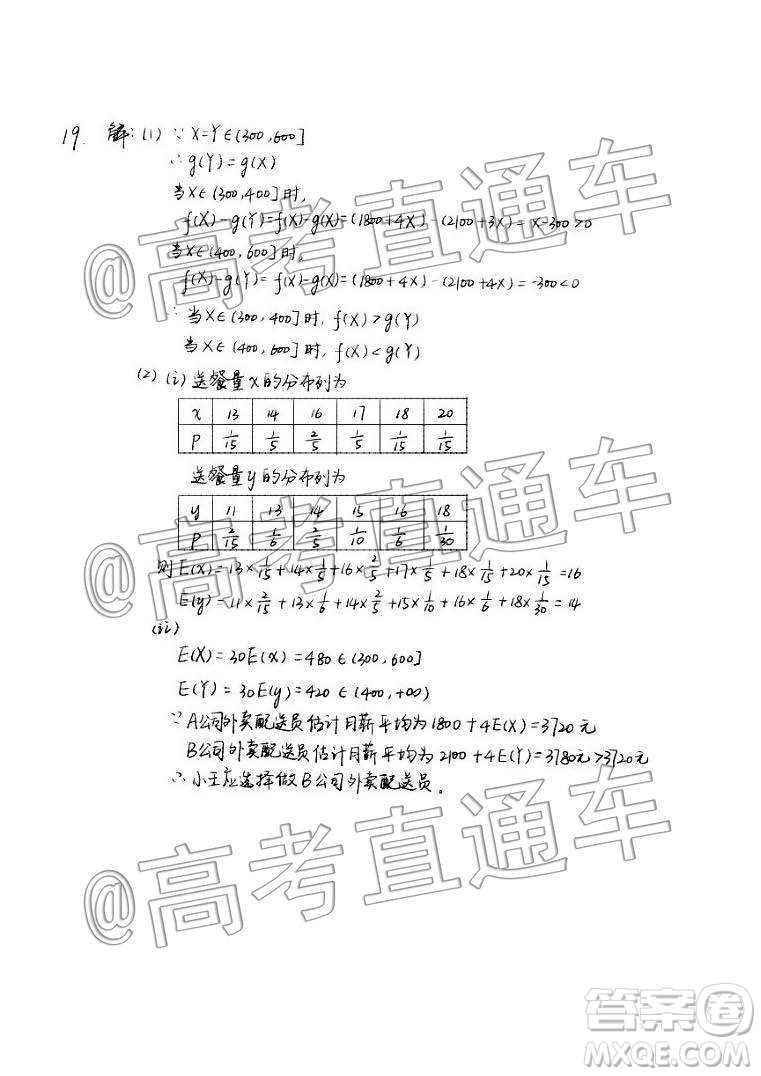 19. 解: (1) ∵ X=Y∈(300,600]
∴ g(Y)=g(X)
当X∈(300,400]时,
f(X)-g(Y)=f(X)-g(X)=(1800+4X)-(2100+3X)=X-300>0
当X∈(400,600]时,
f(X)-g(Y)=f(X)-g(X)=(1800+4X)-(2100+4X)=-300<0
∴ 当X∈(300,400]时, f(X)>g(Y)
当X∈(400,600]时, f(X)<g(Y)
(2) (i) 送餐量x的分布列为
x 13 14 16 17 18 20
P 1/15 1/5 2/5 1/5 1/15 1/15
送餐量y的分布列为
y 11 13 14 15 16 18
P 2/15 1/6 2/5 1/10 1/6 1/30
则E(x)=13×1/15+14×1/5+16×2/5+17×1/5+18×1/15+20×1/15=16
E(y)=11×2/15+13×1/6+14×2/5+15×1/10+16×1/6+18×1/30=14
(ii)
E(X)=30E(x)=480∈(300,600]
E(Y)=30E(y)=420∈(400,+∞)
∵ A公司外卖配送员估计月薪平均为1800+4E(X)=3720元
B公司外卖配送员估计月薪平均为2100+4E(Y)=3780元>3720元
∴ 小王应选择做B公司外卖配送员.
@高考直通车
@高考直通车
@高考直通车
答案卷
MXQE.COM